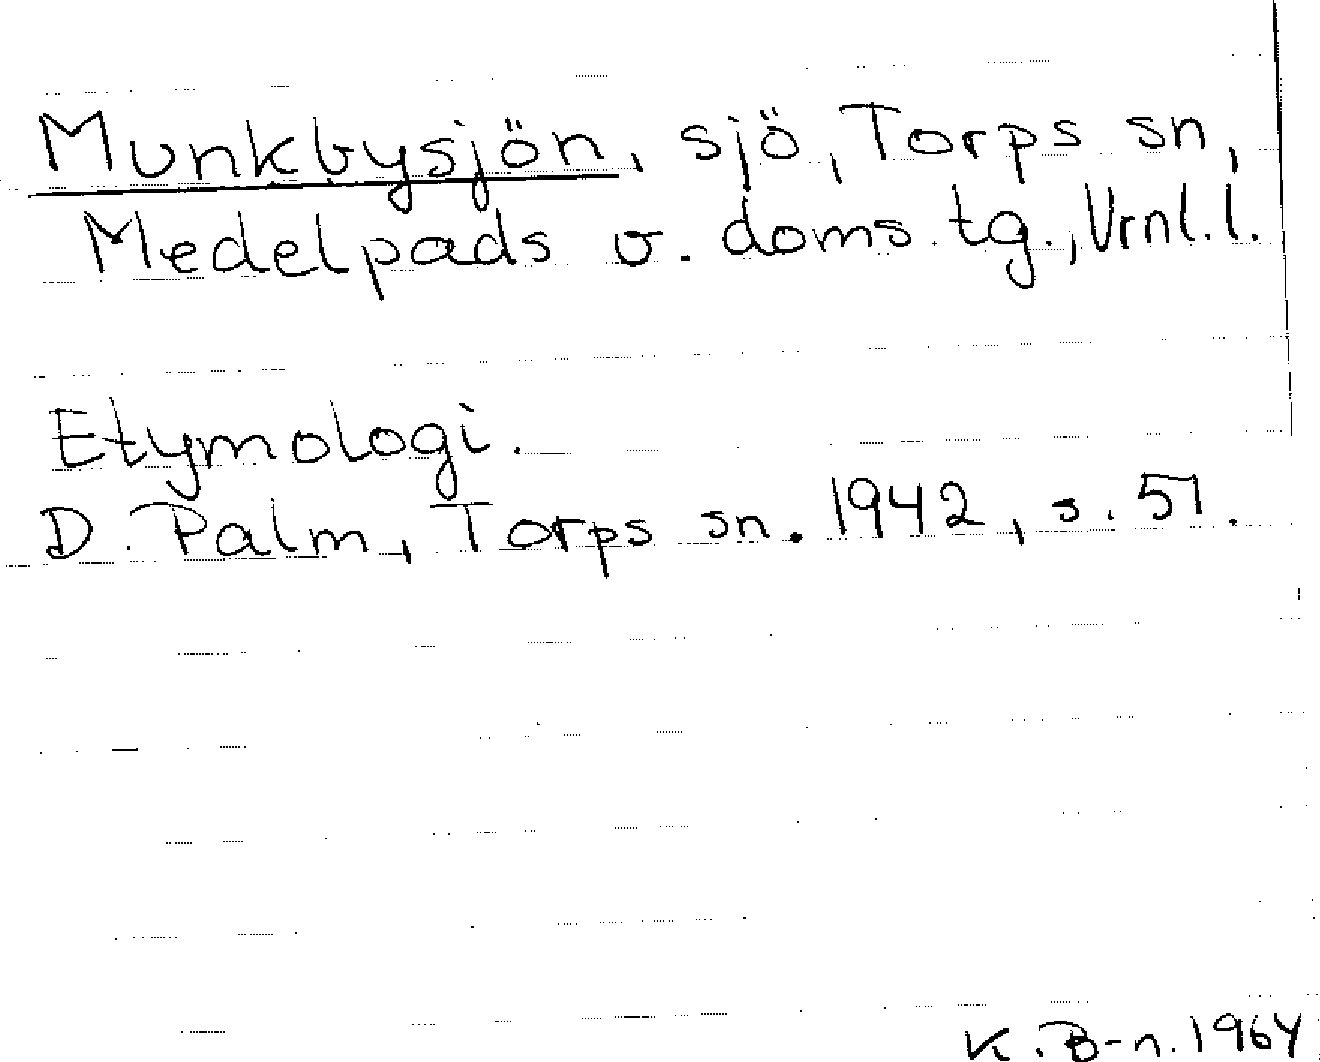 Munkbysjön, sjö, Torps sn,
Medelpads v. doms.tg., Vrnl.l.
Etymologi.
D. Palm, Torps sn. 1942, s. 51.
K. B-n. 1964